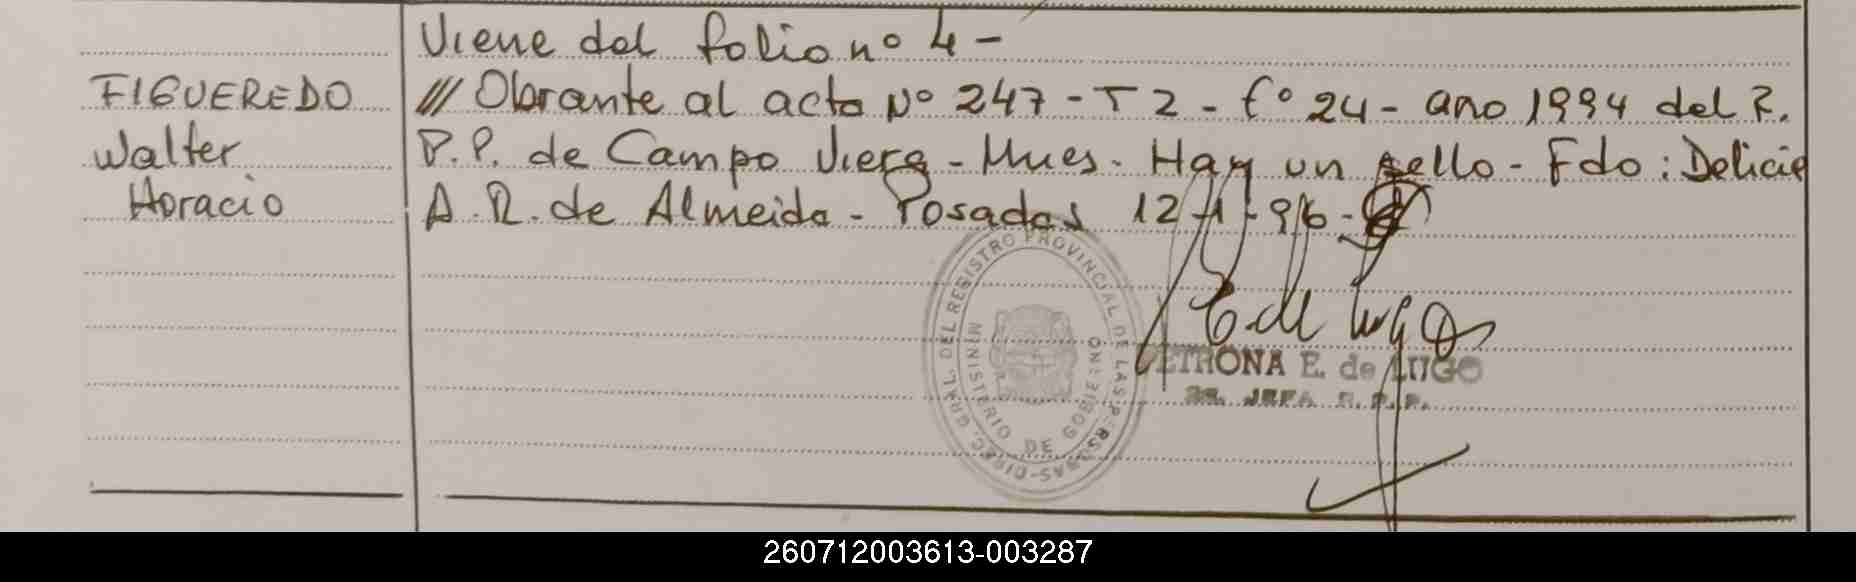 Viene del folio nº 4 -
FIGUEREDO
Walter
Horacio
/// Obrante al acta Nº 247 - T 2 - fº 24 - ano 1994 del R.
P.P. de Campo Viera - Mnes - Hay un sello - Fdo: Delicia
A. R. de Almeida - Posadas 12-1-96-
E. de Lugo
PETRONA E. de LUGO
JEFA R. P. P.
DIREC. GRAL. DEL REGISTRO PROVINCIAL DE LAS PERSONAS
MINISTERIO DE GOBIERNO
260712003613-003287